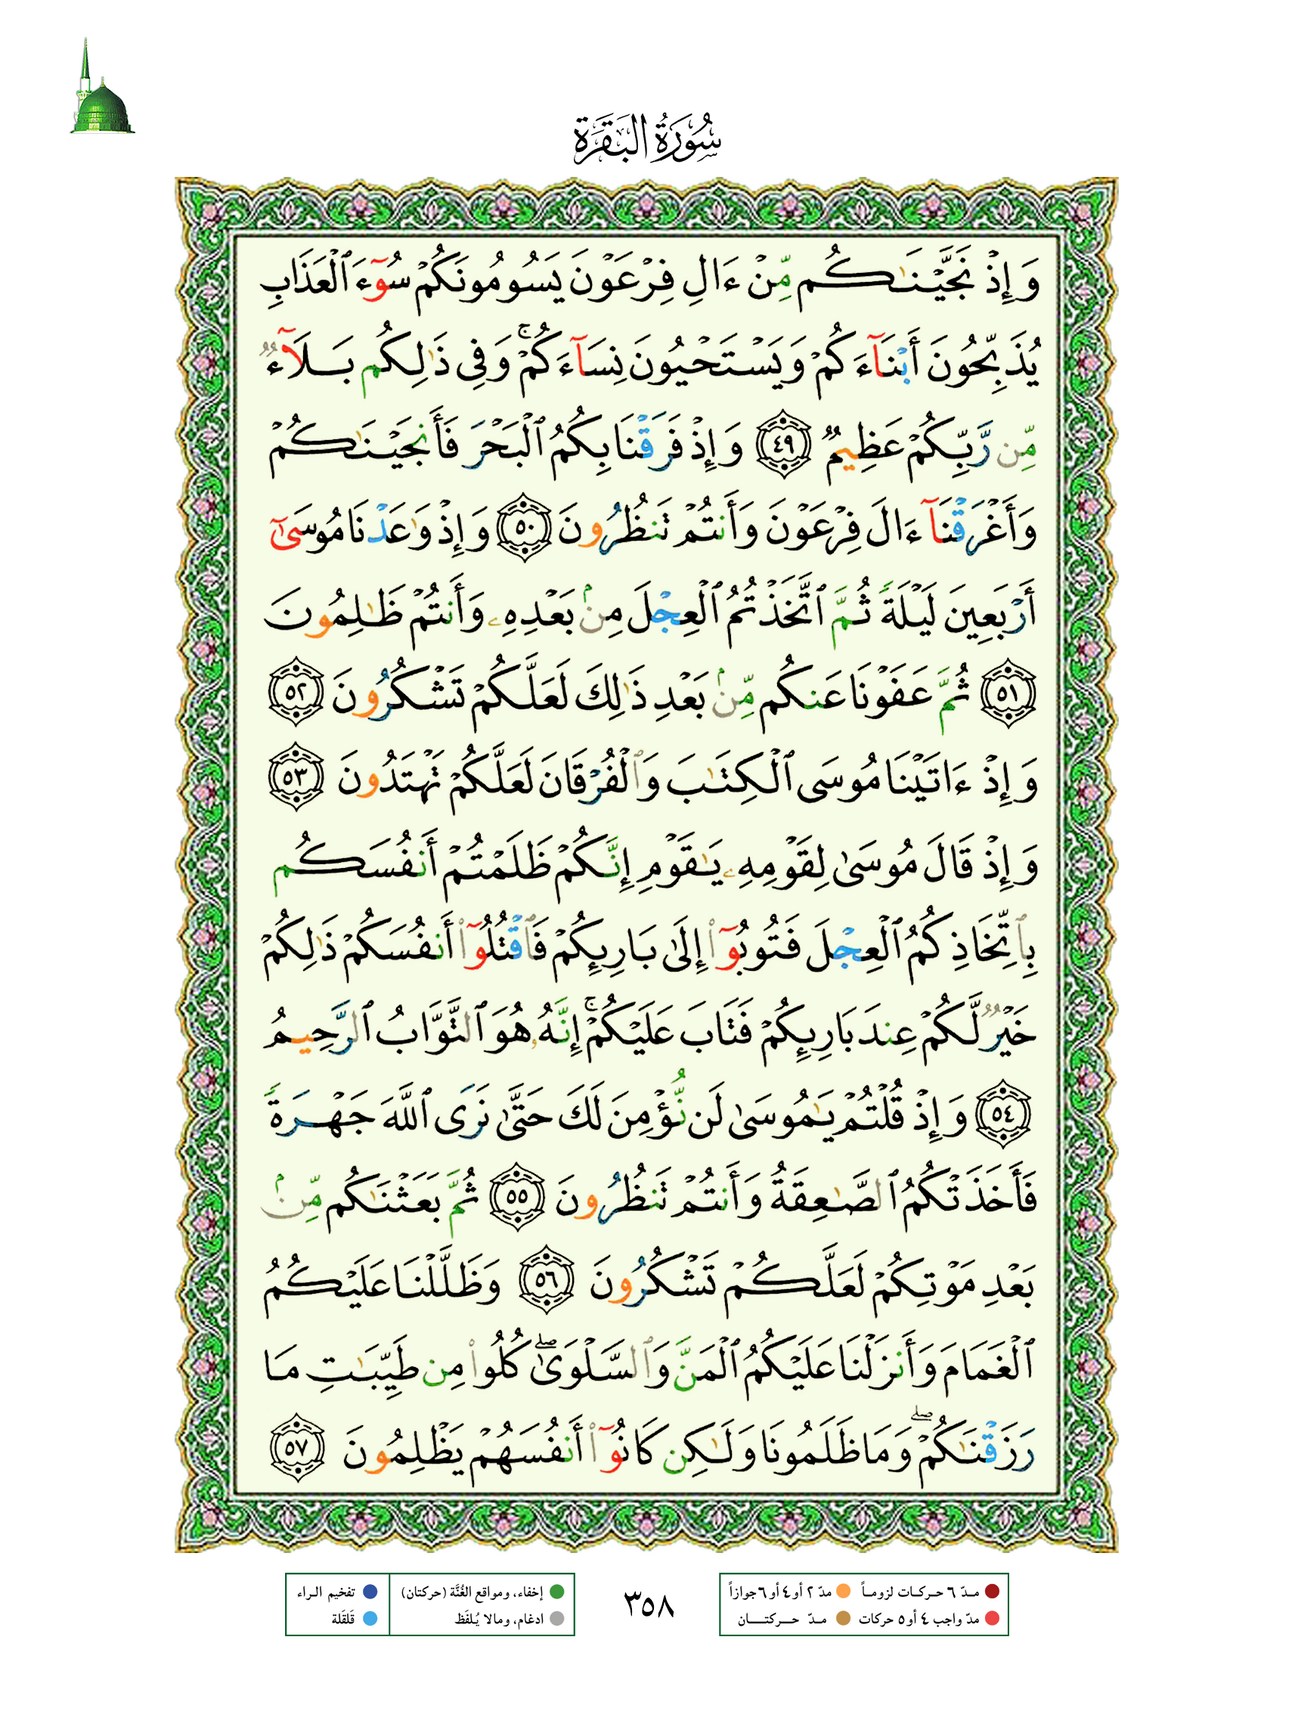 سُورَةُ البَقَرَة
وَإِذْ نَجَّيْنَٰكُم مِّنْ ءَالِ فِرْعَوْنَ يَسُومُونَكُمْ سُوٓءَ ٱلْعَذَابِ
يُذَبِّحُونَ أَبْنَآءَكُمْ وَيَسْتَحْيُونَ نِسَآءَكُمْ ۚ وَفِى ذَٰلِكُم بَلَآءٌ
مِّن رَّبِّكُمْ عَظِيمٌ ٤٩ وَإِذْ فَرَقْنَا بِكُمُ ٱلْبَحْرَ فَأَنجَيْنَٰكُمْ
وَأَغْرَقْنَآ ءَالَ فِرْعَوْنَ وَأَنتُمْ تَنظُرُونَ ٥٠ وَإِذْ وَٰعَدْنَا مُوسَىٰٓ
أَرْبَعِينَ لَيْلَةً ثُمَّ ٱتَّخَذْتُمُ ٱلْعِجْلَ مِنۢ بَعْدِهِۦ وَأَنتُمْ ظَٰلِمُونَ
٥١ ثُمَّ عَفَوْنَا عَنكُم مِّنۢ بَعْدِ ذَٰلِكَ لَعَلَّكُمْ تَشْكُرُونَ ٥٢
وَإِذْ ءَاتَيْنَا مُوسَى ٱلْكِتَٰبَ وَٱلْفُرْقَانَ لَعَلَّكُمْ تَهْتَدُونَ ٥٣
وَإِذْ قَالَ مُوسَىٰ لِقَوْمِهِۦ يَٰقَوْمِ إِنَّكُمْ ظَلَمْتُمْ أَنفُسَكُم
بِٱتِّخَاذِكُمُ ٱلْعِجْلَ فَتُوبُوٓا۟ إِلَىٰ بَارِئِكُمْ فَٱقْتُلُوٓا۟ أَنفُسَكُمْ ذَٰلِكُمْ
خَيْرٌ لَّكُمْ عِندَ بَارِئِكُمْ فَتَابَ عَلَيْكُمْ ۚ إِنَّهُۥ هُوَ ٱلتَّوَّابُ ٱلرَّحِيمُ
٥٤ وَإِذْ قُلْتُمْ يَٰمُوسَىٰ لَن نُّؤْمِنَ لَكَ حَتَّىٰ نَرَى ٱللَّهَ جَهْرَةً
فَأَخَذَتْكُمُ ٱلصَّٰعِقَةُ وَأَنتُمْ تَنظُرُونَ ٥٥ ثُمَّ بَعَثْنَٰكُم مِّنۢ
بَعْدِ مَوْتِكُمْ لَعَلَّكُمْ تَشْكُرُونَ ٥٦ وَظَلَّلْنَا عَلَيْكُمُ
ٱلْغَمَامَ وَأَنزَلْنَا عَلَيْكُمُ ٱلْمَنَّ وَٱلسَّلْوَىٰ ۖ كُلُوا۟ مِن طَيِّبَٰتِ مَا
رَزَقْنَٰكُمْ ۖ وَمَا ظَلَمُونَا وَلَٰكِن كَانُوٓا۟ أَنفُسَهُمْ يَظْلِمُونَ ٥٧
مـدّ ٦ حـركـات لزومـاً مدّ ٢ أو ٤ أو ٦ جوازاً
مدّ واجب ٤ أو ٥ حركات مـدّ حـــركتــــان
٣٥٨
إخفاء، ومواقع الغُنَّة (حركتان) تفخيم الـراء
ادغام، ومالا يُـلفَظ قَلقَلة